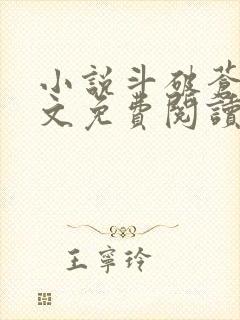 小說斗破蒼
文免費閱讀
王寧玲